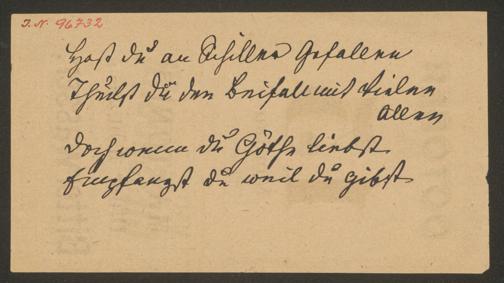 I. N. 96732
Hast du an Schiller Gefallen
Theilst du den Beifall mit Vielen
Allen
Doch wenn du Göthe liebst
Empfangst du weil du gibst